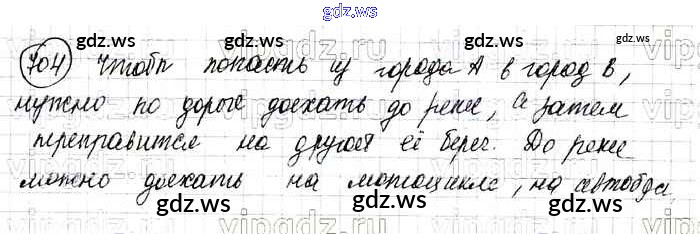 gdz.ws
gdz.ws gdz.ws gdz.ws
704 Чтобы попасть из города А в город В,
нужно по дороге доехать до реки, а затем
переправится на другой её берег. До реки
можно доехать на мотоцикле, на автобусе,
gdz.ws gdz.ws gdz.ws
gdz.ws gdz.ws gdz.ws